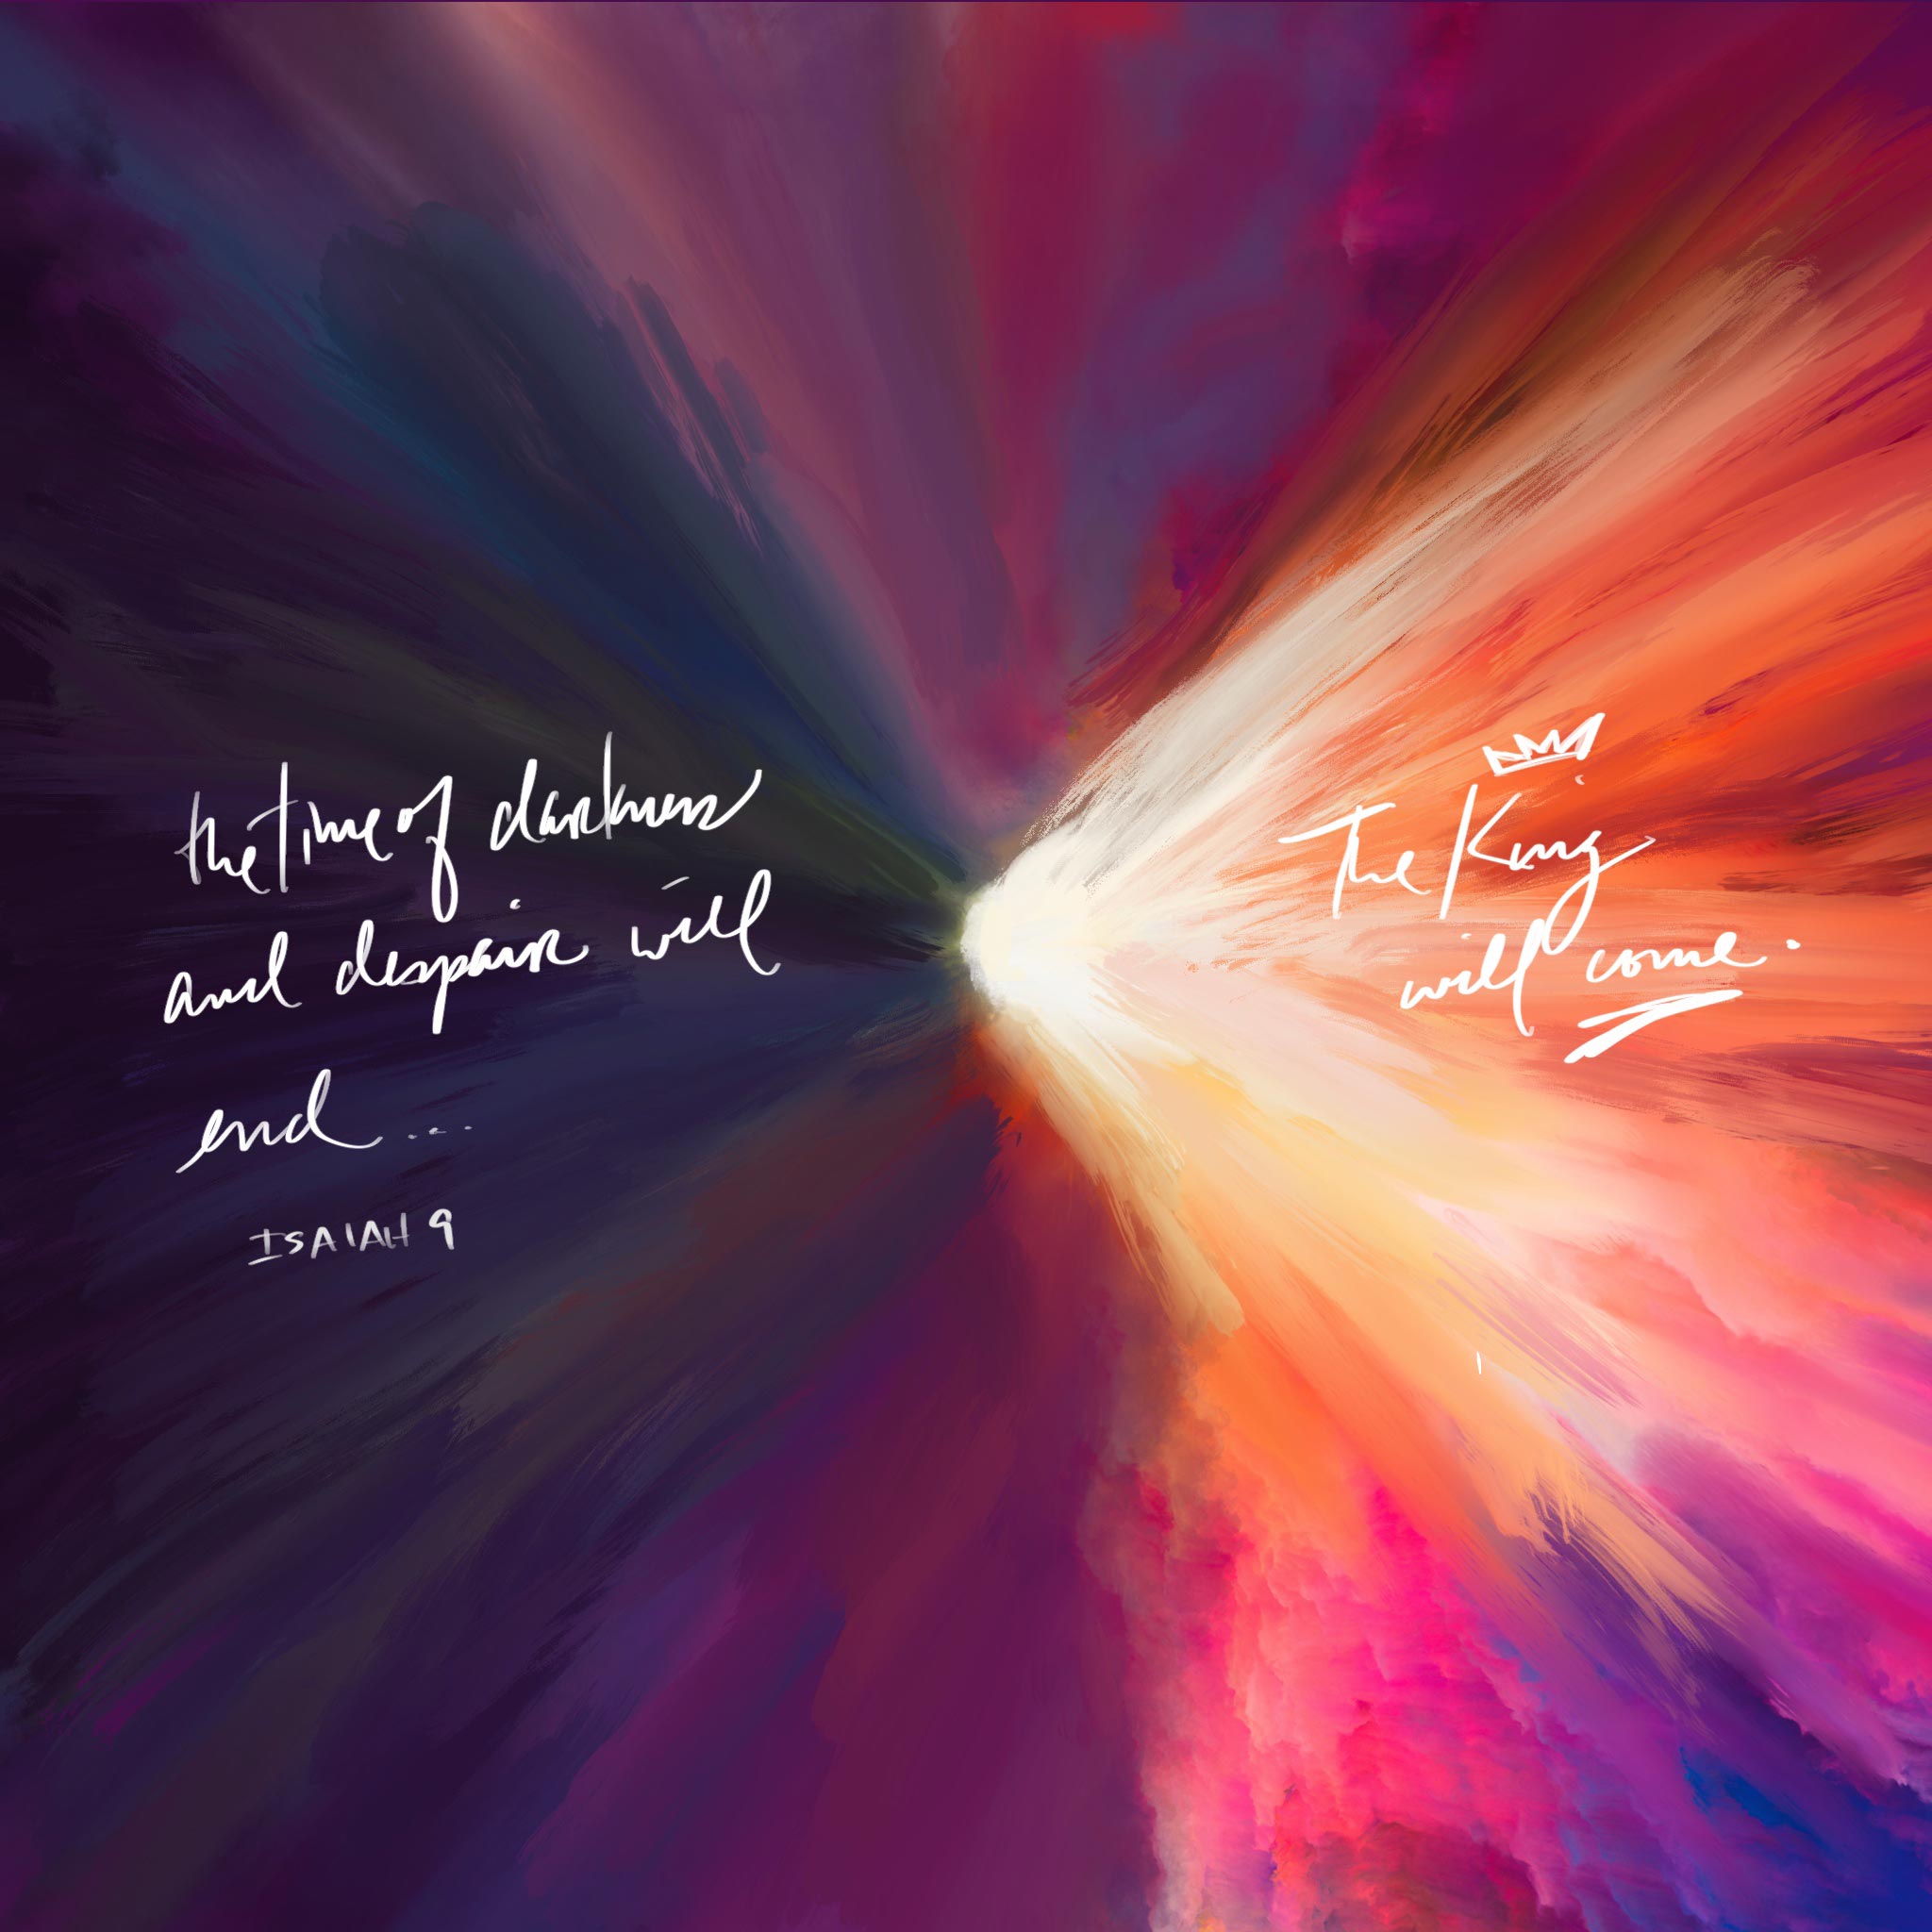 the time of darkness
and despair will
end...
ISAIAH 9
The King
will come.